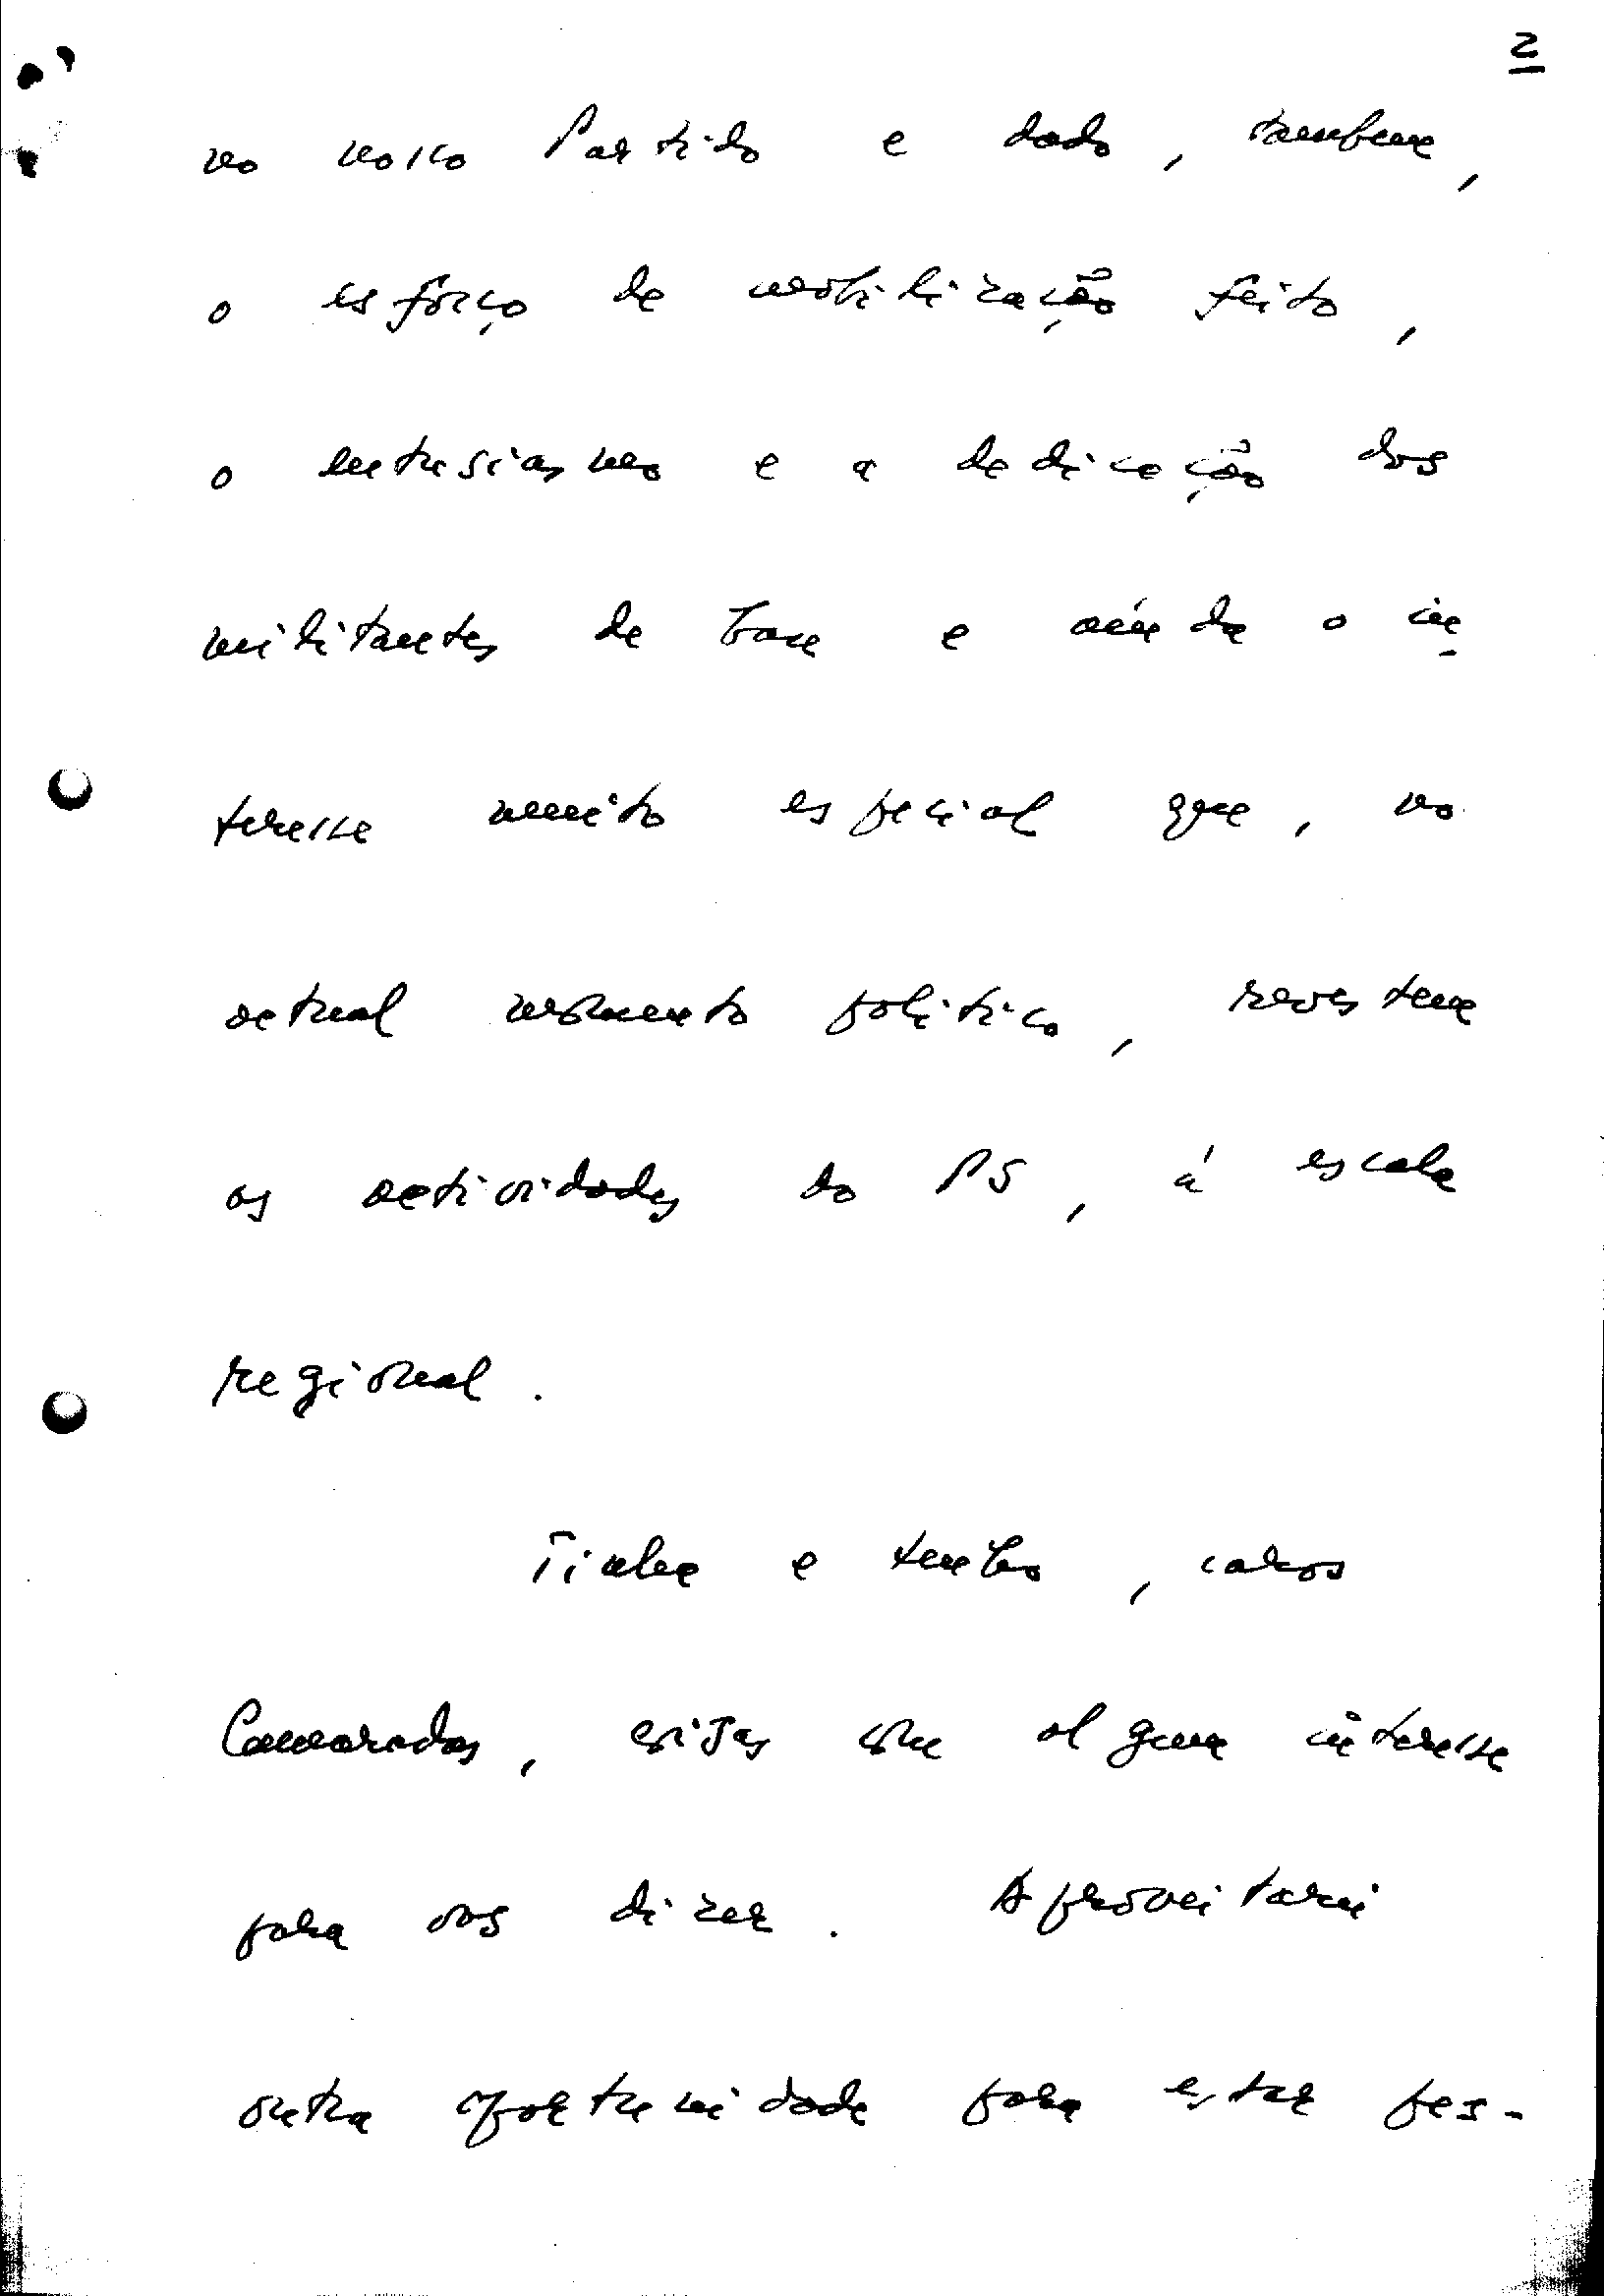 2
no nosso Partido e dado, também,
o esforço de mobilização feito,
o entusiasmo e a dedicação dos
militantes de base e ainda o in-
teresse muito especial que, no
actual momento político, revestem
as actividades do PS, à escala
regional.
Tinha e tenho, caros
Camaradas, coisas com algum interesse
para vos dizer. Aproveitarei
outra oportunidade para estar pes-